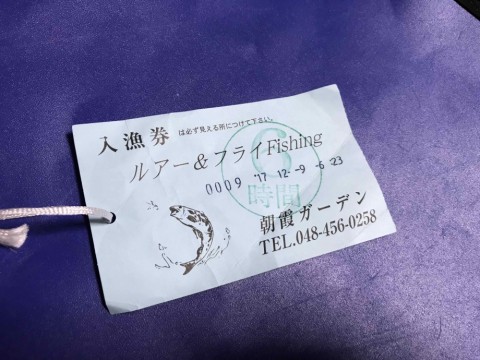 入漁券 は必ず見える所につけて下さい。
ルアー&フライFishing
0009 '17 12.-9 -6:23
6
時間
朝霞ガーデン
TEL.048-456-0258